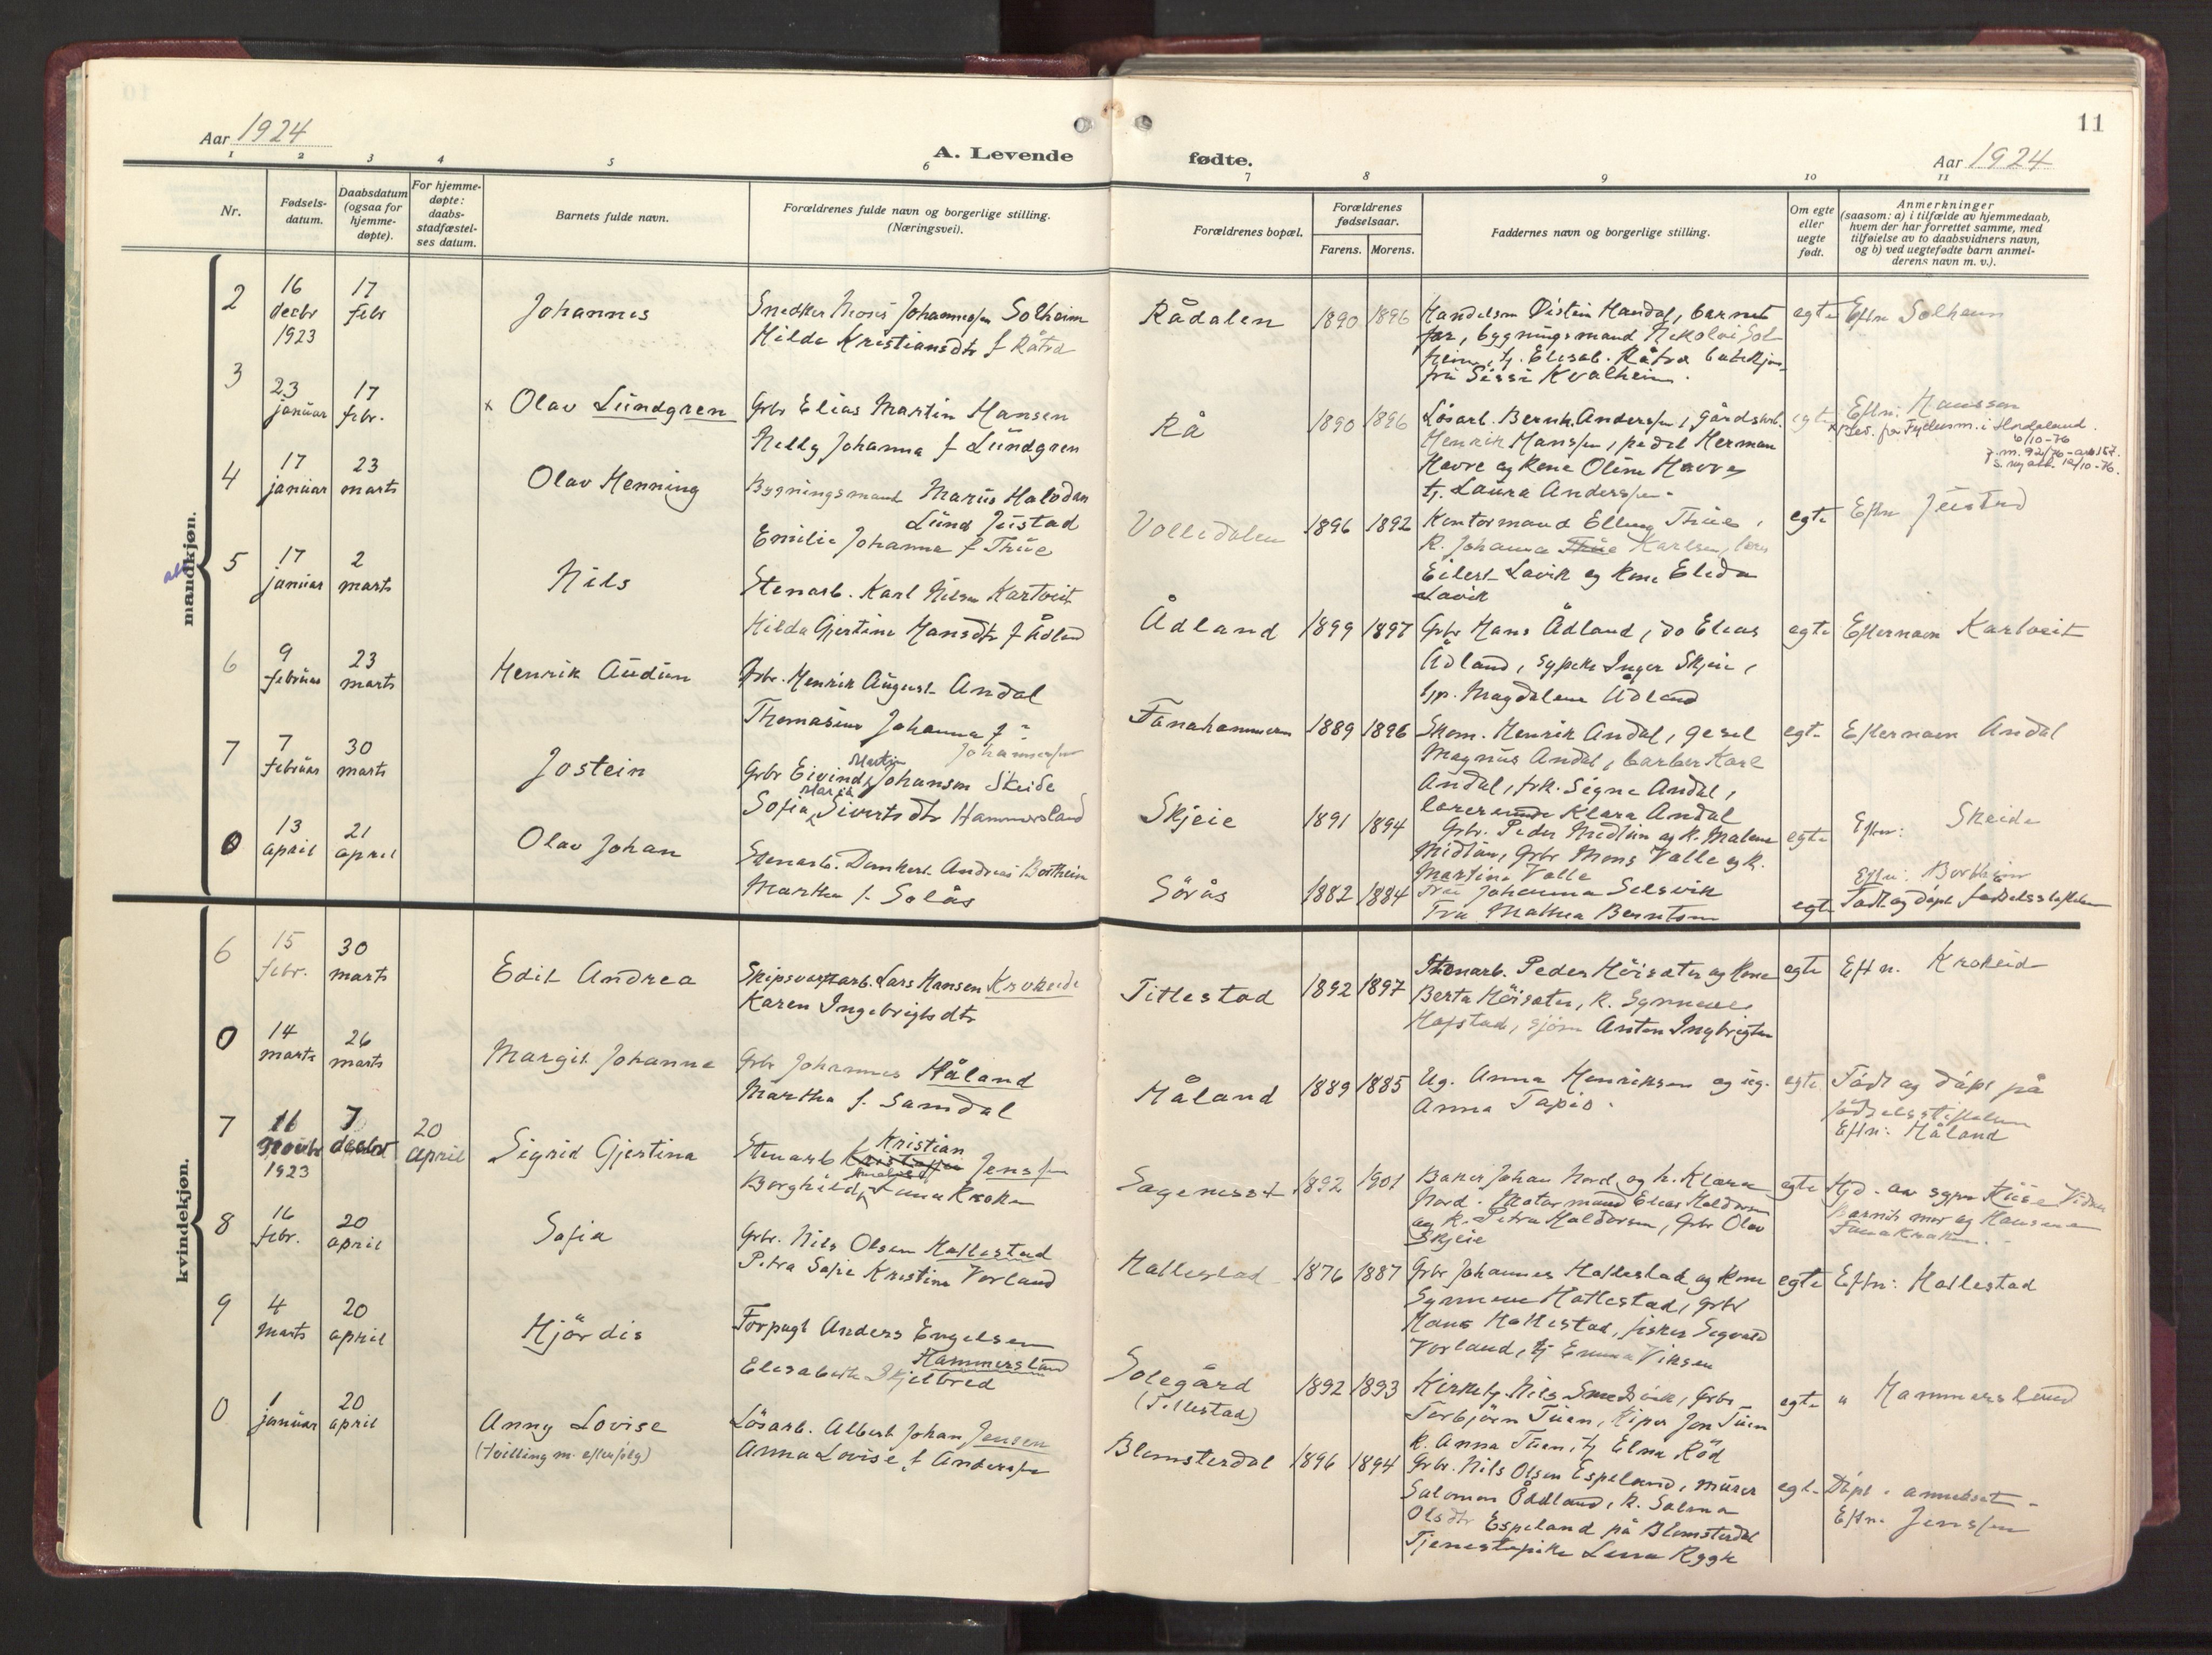 11
Aar 1924
A. Levende
fødte.
Aar 1924
1 2 3 4 5 6
7 8 9 10 11
Nr.
Fødsels-
datum.
Daabsdatum
(ogsaa for
hjemme-
døpte).
For hjemme-
døpte:
daabs-
stadfæstel-
ses datum.
Barnets fulde navn.
Forældrenes fulde navn og borgerlige stilling.
(Næringsvei).
Forældrenes bopæl.
Forældrenes
fødselsaar.
Farens. Morens.
Faddernes navn og borgerlige stilling.
Om egte
eller
uegte
født.
Anmerkninger
(saasom: a) i tilfælde av hjemmedaab,
hvem der har forrettet samme, med
tilføielse av to daabsvidners navn,
og b) ved uegtefødte barn anmel-
derens navn m. v.).
mandkjøn.
2
16
decbr
1923
17
febr
Johannes
Snedker Johannessen Solheim
Hilda Kristiansdtr f Råtræ
Rådalen
1890 1896
Handelsm Øistein Handal, barnets
far, bygningsmand Nikolai Sol
heim, tj. Elisab. Råtræ
frk Sissi Kvalheim.
egte
Eftn Solheim
3
23
januar
17
febr.
x Olav Lundgren
Grbr Elias Martin Hansen
Nelly Johanna f Lundgren
Rå
1890 1896
Løsarb. Bernh. Anderssen, gårdsarb.
Henrik Hanssen, pedel Herman
Havre og kone Oline Havre
tj. Laura Anderssen.
egte
Eftn: Hanssen
x Bev. fra Fylkesm. i Hordaland
6/10-76
j.m. 921/76-
12/10-76.
4
17
januar
23
marts
Olav Henning
Bygningsmand Marius Halvdan
Lund Justad
Emilie Johanna f Thue
Volledalen
1896 1892
Kontormand Elling Thue,
K. Johanna Thue Karlsen,
Eilert Lavik og kone Elida
Lavik
egte
Eftn Justad
5
17
januar
2
marts
Nils
Stenarb. Karl Nilsen Kartveit
Hilda Gjertine Hansdtr f Ådland
Ådland
1899 1897
Grbr Hans Ådland, do Elias
Ådland, sypike Inger Skjeie,
Magdalene Ådland
egte
Efternavn Kartveit
6
9
februar
23
marts
Henrik Audun
Grbr. Henrik August Andal
Thomasine Johanna f
Johannessen
Fanahammeren
1889 1896
Skom. Henrik Andal, gesel
Magnus Andal, barber Karl
Andal, frk. Signe Andal,
Klara Andal
egte
Efternavn Andal
7
7
februar
30
marts
Jostein
Grbr Eivind Martin Johansen Skeide
Sofia Maria Sivertsdtr Hammersland
Skjeie
1891 1894
Grbr. Peder Midtun og k. Malene
Midtun, Grbr Mons Valle og k.
Martina Valle
egte
Eftn: Skeide
0
13
april
21
april
Olav Johan
Stenarb. Dankert Andreas Bortheim
Martha f. Solås
Sörås
1882 1884
Fru Johanna Selsvik
Fru Mathea Berntsen
egte
Eftn: Bortheim
Födt og döpt födselsstiftelsen
kvindekjøn.
6
15
febr.
30
marts
Edit Andrea
Skipsverftarb. Lars Hansen Krokeide
Karen Ingebrigtsdtr
Titlestad
1892 1897
Stenarb. Peder Höisæter og kone
Berta Höisæter, K. Synneve
Hafstad, Anton Ingbrigtsen
egte
Eftn. Krokeid
0
14
marts
26
marts
Margit Johanne
Grbr Johannes Håland
Martha f. Samdal
Håland
1889 1885
Ug. Anna Henriksen og ug.
Anna
egte
Födt og döpt på
födselsstiftelsen
Eftn: Håland
7
16
novbr
1923
7
decbr
20
april
Sigrid Gjertina
Stenarb Kristian Jenssen
Borghild Fanakroken
Sagenesset
1892 1901
Baker Johan Nord og k. Klara
Nord. Motormand Elias Haldorsen
og k. Petra Haldorsen, Grbr Olav
Skjeie
egte
Hjd. av
Barnets mor og
Fanakroken.
8
16
febr.
20
april
Sofia
Grbr. Nils Olsen Hatlestad
Petra Sofie Kristine Vorland
Hatlestad
1876 1887
Grbr Johannes Hatlestad og kone
Synneve Hatlestad, Grbr
Hans Hatlestad, fisker Sigvald
Vorland, tj Emma Viksen
egte
Eftn: Hatlestad
9
4
marts
20
april
Hjördis
Forpagt Anders Engelsen
Hammersland
Elisabeth Skjelbred
Solegård
(Titlestad)
1892 1893
Kirketj. Nils Smedsvik, Grbr
Torbjörn Tuen, Jon Tuen
k. Anna Tuen, tj Elna Röd
egte
" Hammersland
0
1
januar
20
april
Anny Lovise
(tvilling m. efterfölg)
Lösarb. Albert Johan Jensen
Anna Lovise f Anderssen
Blomsterdal
1896 1894
Grbr. Nils Olsen Espeland, murer
Salomon Ådland, k. Salma
Olsdtr Espeland på Blomsterdal
Tjenestepike Lena Rygg
egte
Döpt i annekset.
Eftn. Jenssen